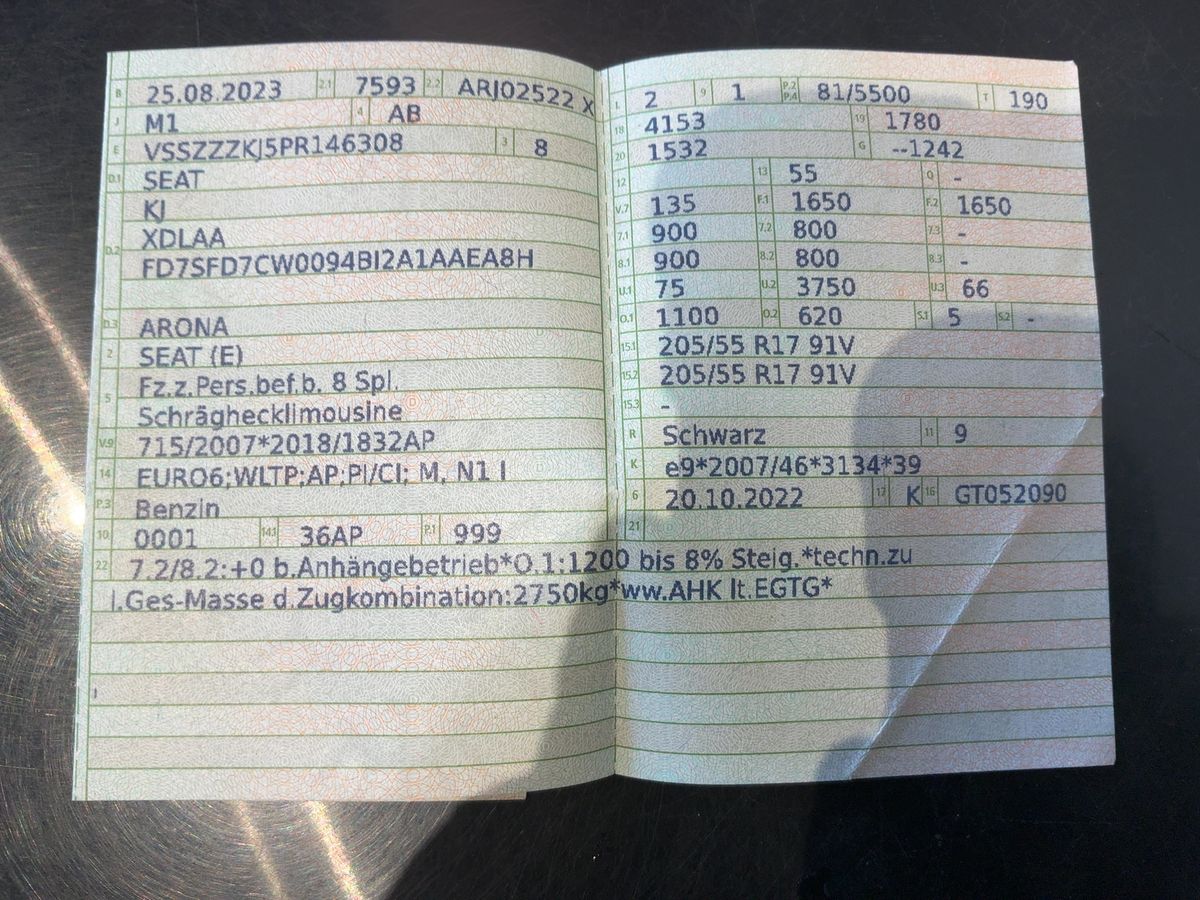 B 25.08.2023 2.1 7593 2.2 ARJ02522 X
J M1 4 AB
E VSSZZZKJ5PR146308 3 8
D.1 SEAT
KJ
D.2 XDLAA
FD7SFD7CW0094BI2A1AAEA8H
D.3 ARONA
2 SEAT (E)
5 Fz.z.Pers.bef.b. 8 Spl.
Schräghecklimousine
V.9 715/2007*2018/1832AP
14 EURO6;WLTP;AP;PI/CI; M, N1 I
P.3 Benzin
10 0001 14.1 36AP P.1 999
L 2 9 1 P.2 P.4 81/5500 T 190
18 4153 19 1780
20 1532 G --1242
12 13 55 Q -
V.7 135 F.1 1650 F.2 1650
7.1 900 7.2 800 7.3 -
8.1 900 8.2 800 8.3 -
U.1 75 U.2 3750 U.3 66
O.1 1100 O.2 620 S.1 5 S.2 -
15.1 205/55 R17 91V
15.2 205/55 R17 91V
15.3 -
R Schwarz 11 9
K e9*2007/46*3134*39
6 20.10.2022 17 K 16 GT052090
21
22 7.2/8.2:+0 b.Anhängebetrieb*O.1:1200 bis 8% Steig.*techn.zu
l.Ges-Masse d.Zugkombination:2750kg*ww.AHK lt.EGTG*